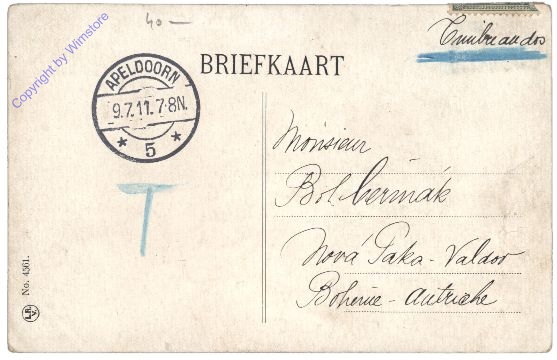 40 —
Timbre au dos
Copyright by Wimstore
BRIEFKAART
APELDOORN
9.7.11.7-8N.
* 5 *
T
Monsieur
Bol. Čermák
Nová Paka - Valdov
Bohême - Autriche
No. 4561.